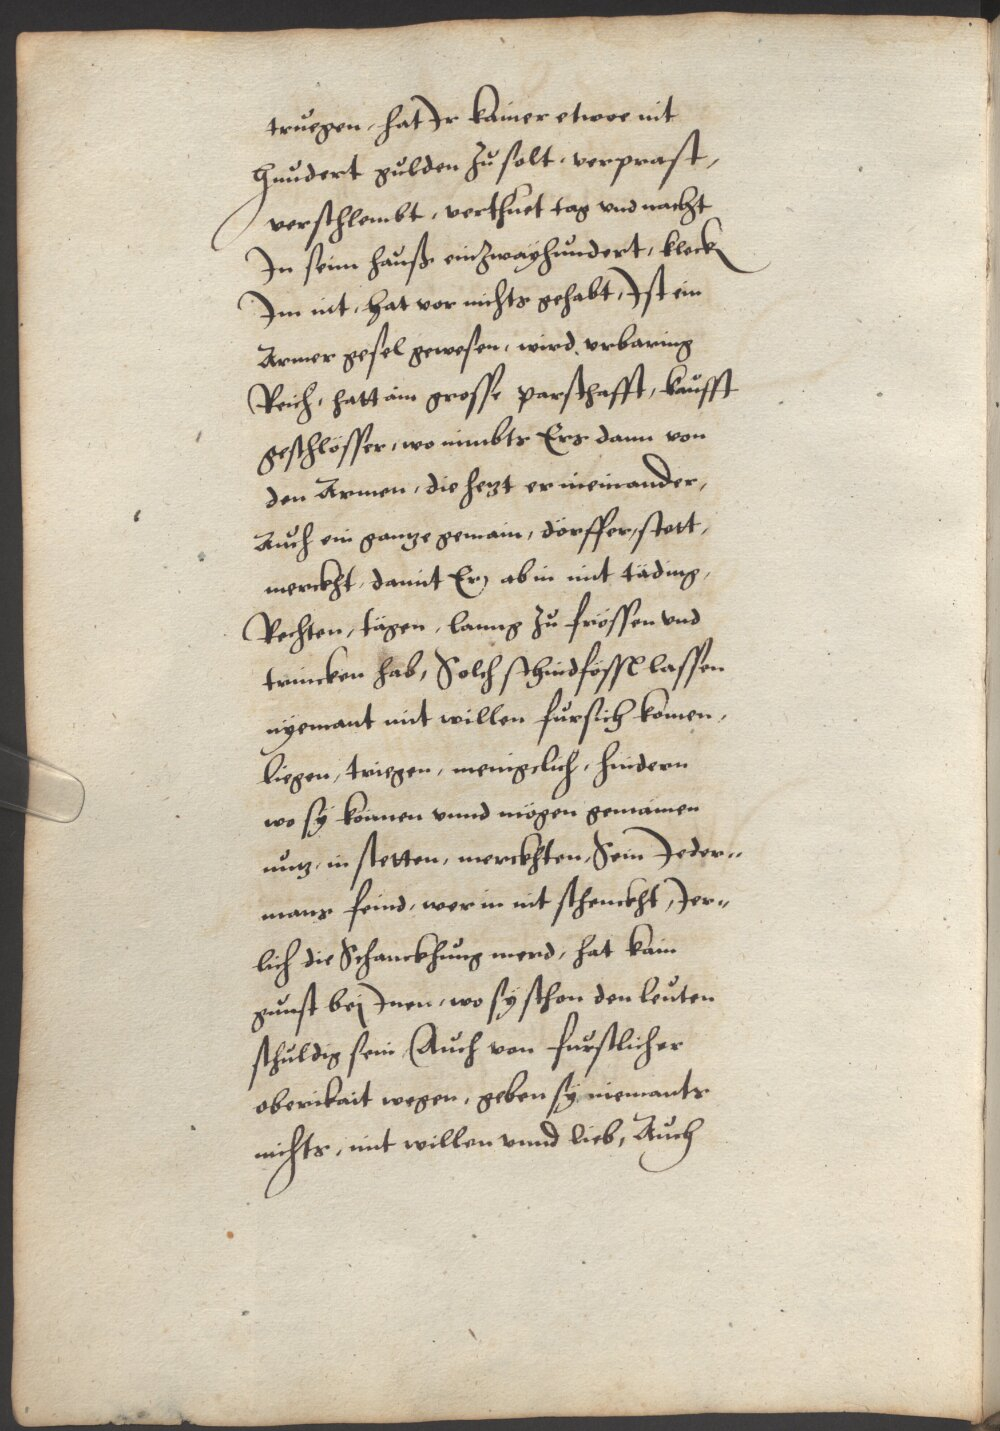 truegen, hat Ir kainer etwoe nit
hundert gulden zu solt, verprast,
verschlembt, verthuet tag vnd nacht
In seim hauß ein zwayhundert, kleckt
Im nit, hat vor nichts gehabt, Ist ein
Armer gesel gewesen, wird vrbaring
Reich, hatt ain grosse parschafft, kaufft
geschlösser, wo nimbts Ers dann von
den Armen, die hezt er ineinander,
Auch ein gantze gemain, dörffer, stett,
merckht, damit Er ab in mit täding,
Rechten, tägen, lanng zu frössen vnd
trincken hab, Solch schindfössl lassen
nyemant mit willen fursich komen,
liegen, triegen, menigclich, hindern
wo sy können vnnd mögen gemainen
nutz, in stetten, merckhten, Sein Jeder-
mans feind, wer in nit schenckht, Jer-
lich die Schanckhung merd, hat kain
gunst bej Inen, wo sy schon den leuten
schuldig sein, Auch von furstlicher
oberikait wegen, geben sy niemants
nichts, mit willen vnnd lieb, Auch